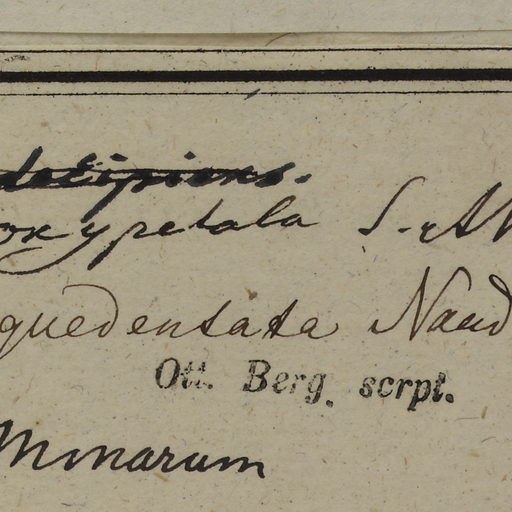 decipiens.
oxypetala
quedentata Naud
Ott. Berg. scrpt.
Minarum